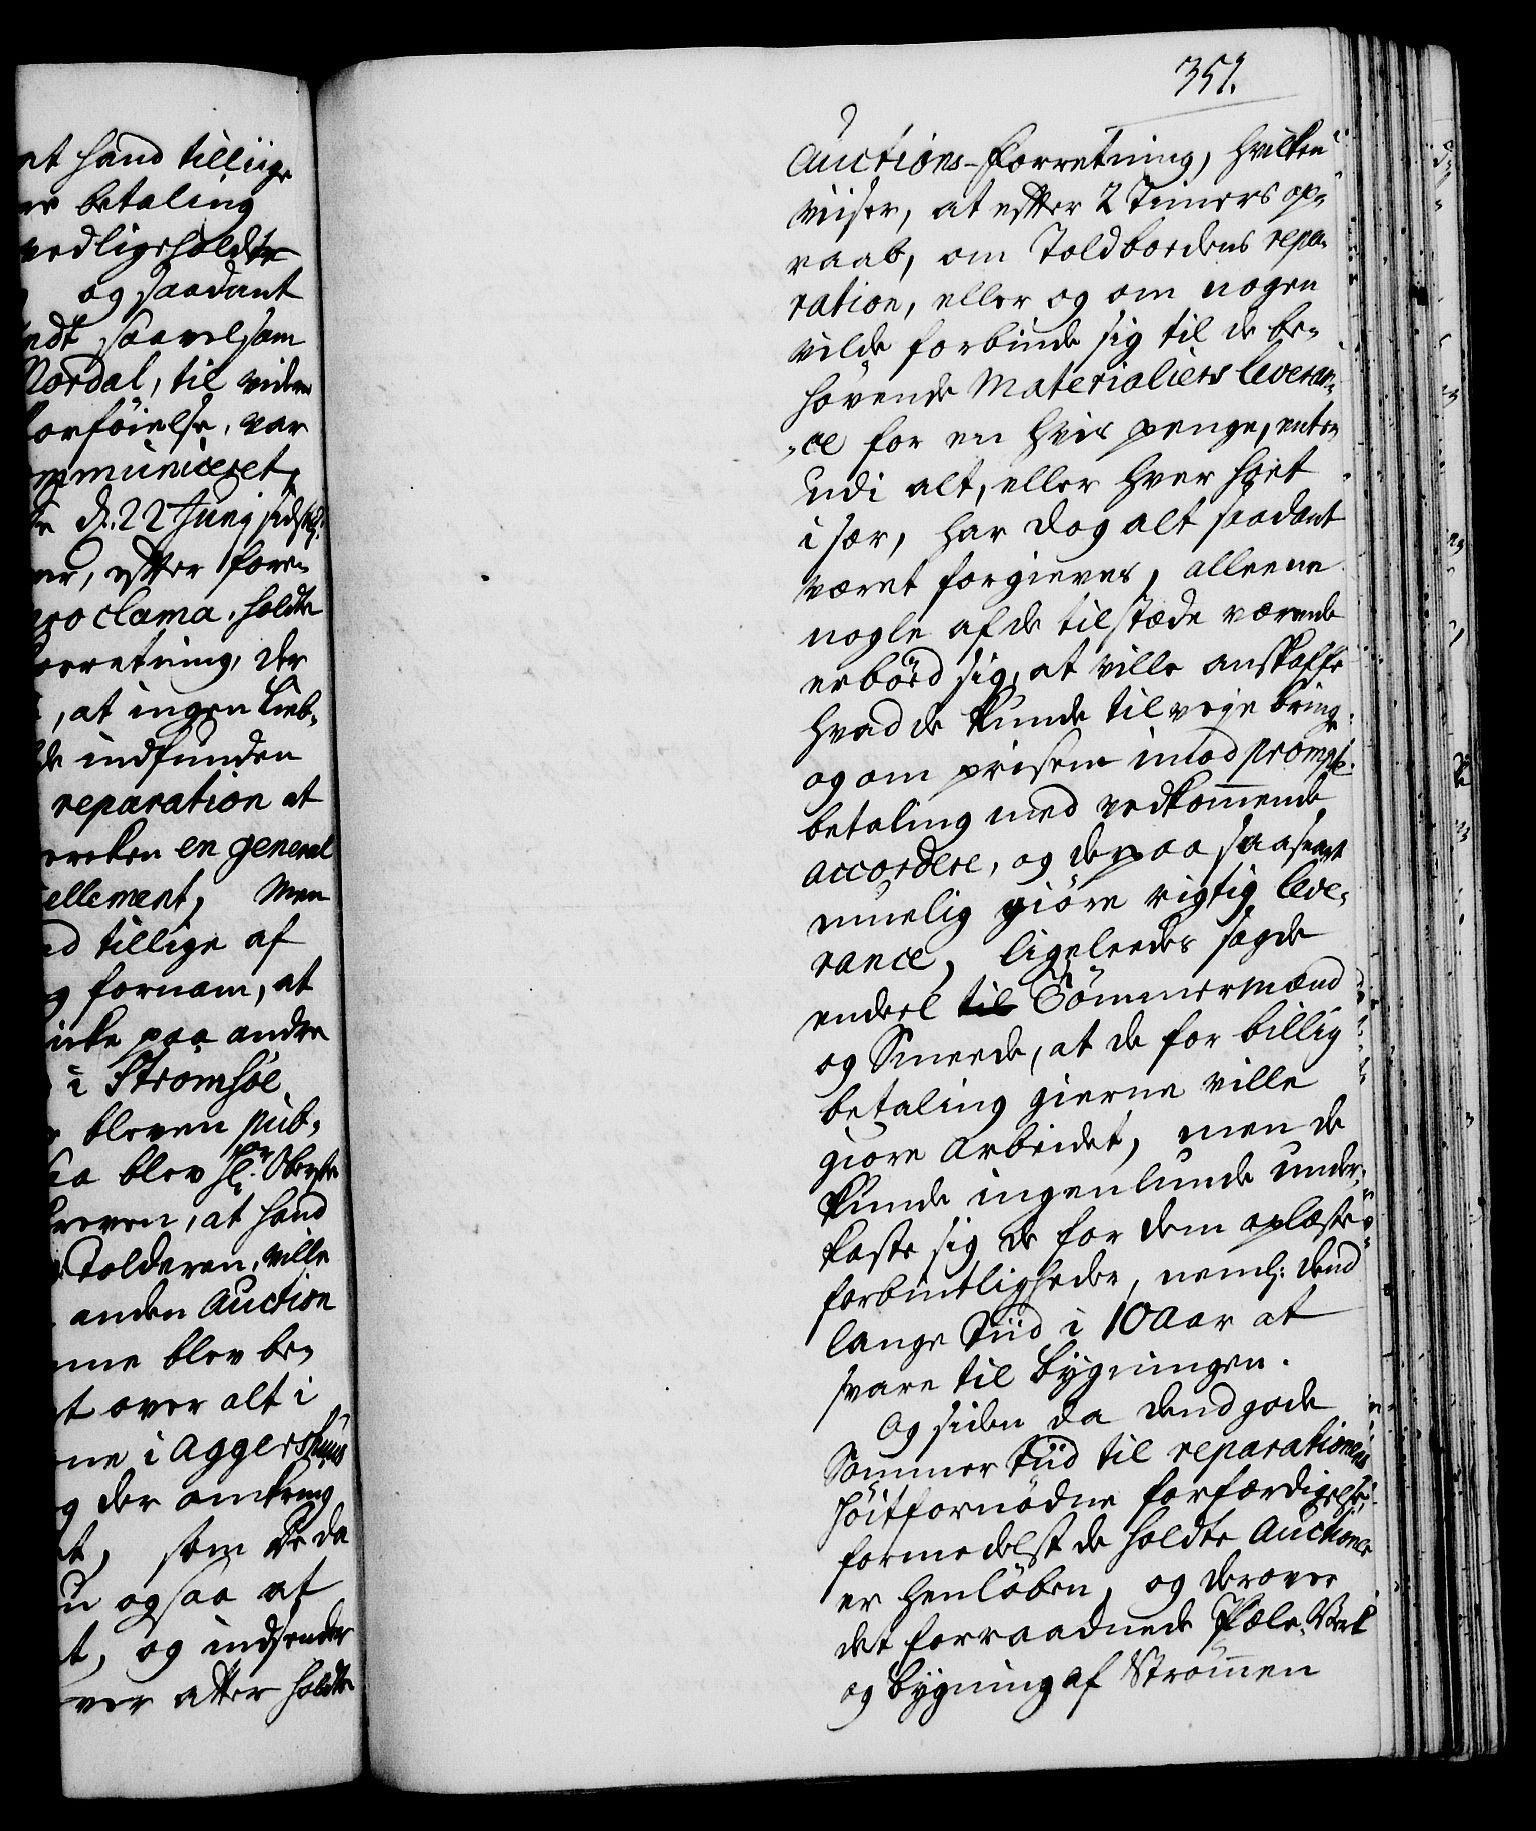 nt hand tilliige
betaling
vedligeholdte
og saadant
ndt saavelsom
Nordal, til videre
forföielse, var
mmuniceret,
d. 22 Junij sidstl:
er, efter fore-
proclama, holdte
orretning, der
, at ingen Lieb-
indfunden
reparation at
en general
ellement, Men
tillige af
fornam, at
icke paa andre
i Strömsöe
bleven pub-
blev Hr. Oberste
kreven, at hand
Tolderen, ville
anden Auction
blev be-
t over alt i
ne i Aggershuus
g der omkring
t, som de da
u ogsaa at
t, og indsender
ver atter holdte
351.
Auctions-Forretning, hvilken
viiser, at efter 2 Timers op-
raab, om Toldbodens repa-
ration, eller og om nogen
vilde forbinde sig til de be-
hövende Materialiers leveran-
ce for en hvis penge, enten
udi alt, eller hver sort
i sær, har dog alt saadant
været forgieves, alleene
nogle af de tilstæde værende
erböed sig, at ville anskaffe
hvad de kunde tilveje bringe
og om prisene imod prompte
betaling med vedkommende
accordere, og derpaa saasnart
muelig giöre rigtig leve-
rance, ligeleedes sagde
endeel til Tömmermænd
og Smeede, at de for billig
betaling gierne ville
giöre Arbeidet, men de
kunde ingenlunde under-
kaste sig de for dem oplæste
forbindtligheder, neml: dend
lange Tiid i 10 Aar at
svare til bygningen.
Og siden da dend gode
Sommer Tiid til reparationens
höitfornödne forfærdigelse,
formedelst de holdte Auctioner
er henlöben, og derover
det forraadnede Pæle-Verk
og bygning af Strömmen